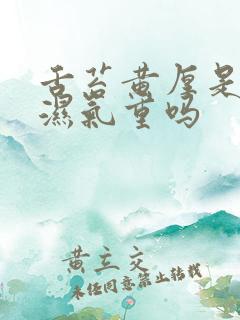 舌苔黄厚是
濕氣重吗
黄立文
未经同意禁止转载